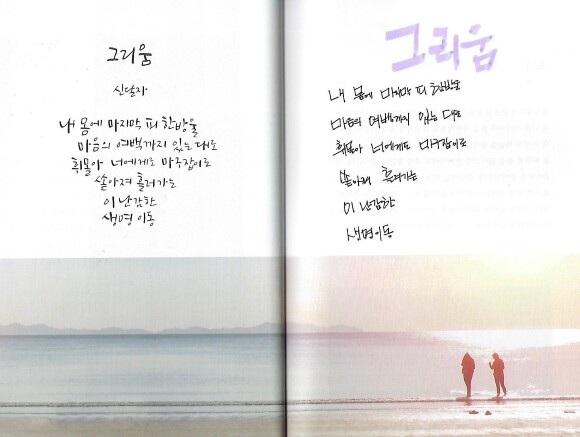 그리움
신달자
내 몸에 마지막 피 한방울
마음의 여백까지 있는 대로
휘몰아 너에게로 마주잡이로
쏟아져 흘러가는
이 난감한
생명 이동
그리움
내 몸에 마지막 피 한방울
마음의 여백까지 있는 대로
휘몰아 너에게로 마주잡이로
쏟아져 흘러가는
이 난감한
생명이동